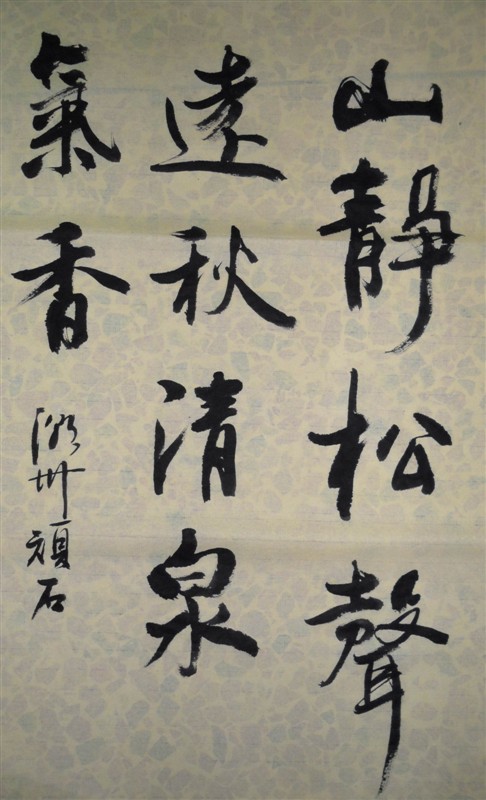 山靜松聲
遠秋清泉
氣香
州頑石